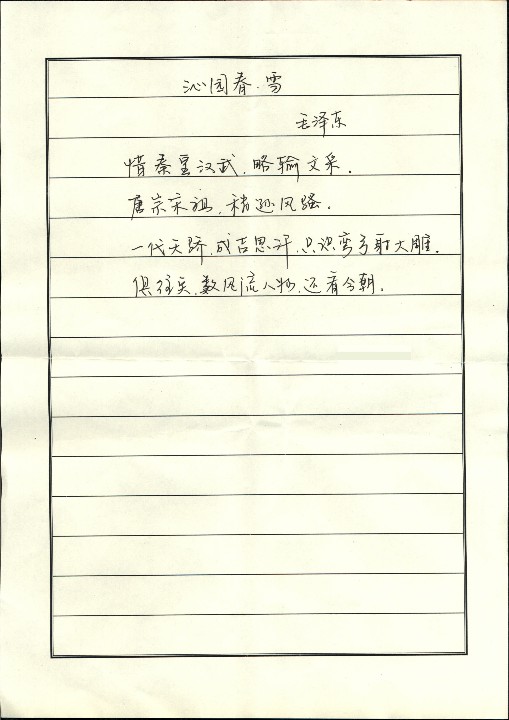 沁园春·雪
毛泽东
惜秦皇汉武,略输文采.
唐宗宋祖,稍逊风骚.
一代天骄,成吉思汗,只识弯弓射大雕.
俱往矣,数风流人物,还看今朝.